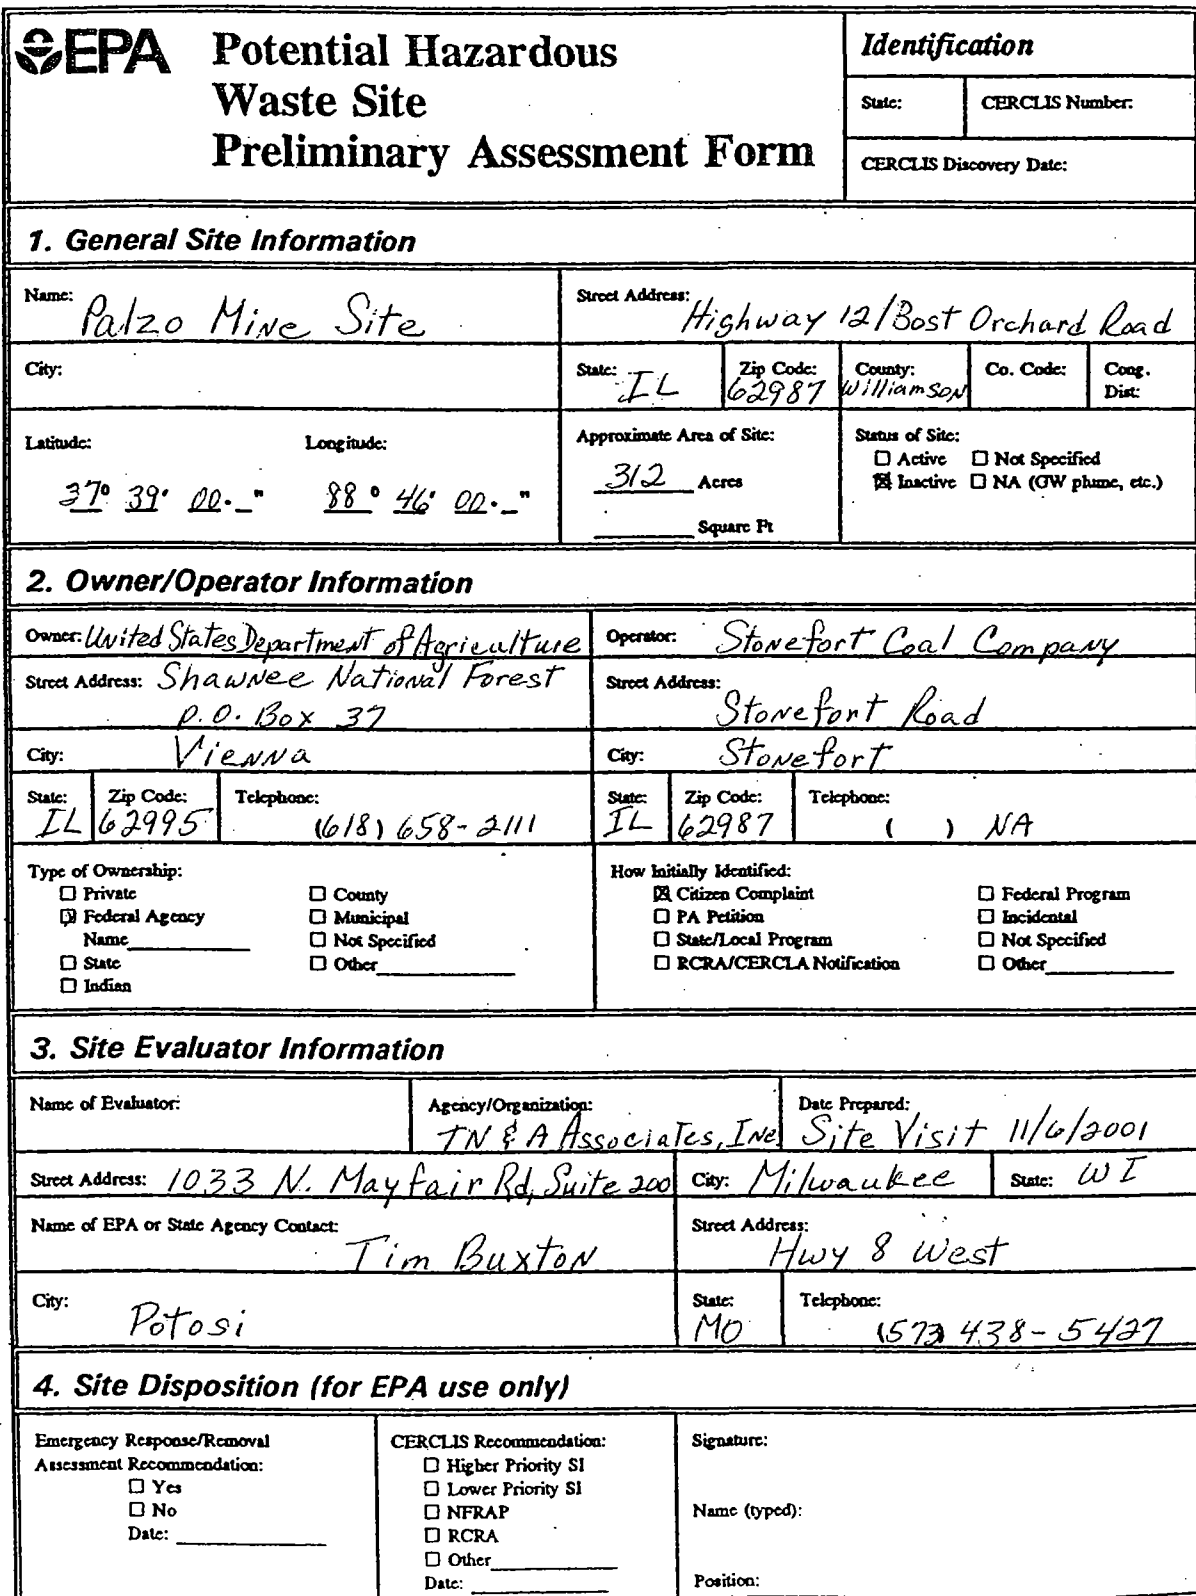 EPA
Potential Hazardous
Waste Site
Preliminary Assessment Form
Identification
State:
CERCLIS Number:
CERCLIS Discovery Date:
1. General Site Information
Name: Palzo Mine Site
Street Address: Highway 12/Bost Orchard Road
City:
State: IL
Zip Code: 62987
County: Williamson
Co. Code:
Cong. Dist:
Latitude: 37° 39' 00._"
Longitude: 88° 46' 00._"
Approximate Area of Site:
312 Acres
______ Square Ft
Status of Site:
☐ Active ☐ Not Specified
☒ Inactive ☐ NA (GW plume, etc.)
2. Owner/Operator Information
Owner: United States Department of Agriculture
Operator: Stonefort Coal Company
Street Address: Shawnee National Forest
P.O. Box 37
Street Address: Stonefort Road
City: Vienna
City: Stonefort
State: IL
Zip Code: 62995
Telephone: (618) 658-2111
State: IL
Zip Code: 62987
Telephone: ( ) NA
Type of Ownership:
☐ Private
☒ Federal Agency
Name______
☐ State
☐ Indian
☐ County
☐ Municipal
☐ Not Specified
☐ Other______
How Initially Identified:
☒ Citizen Complaint
☐ PA Petition
☐ State/Local Program
☐ RCRA/CERCLA Notification
☐ Federal Program
☐ Incidental
☐ Not Specified
☐ Other______
3. Site Evaluator Information
Name of Evaluator:
Agency/Organization: TN & A Associates, Inc
Date Prepared: Site Visit 11/6/2001
Street Address: 1033 N. Mayfair Rd, Suite 200
City: Milwaukee
State: WI
Name of EPA or State Agency Contact: Tim Buxton
Street Address: Hwy 8 West
City: Potosi
State: MO
Telephone: (573) 438-5427
4. Site Disposition (for EPA use only)
Emergency Response/Removal
Assessment Recommendation:
☐ Yes
☐ No
Date: ______
CERCLIS Recommendation:
☐ Higher Priority SI
☐ Lower Priority SI
☐ NFRAP
☐ RCRA
☐ Other______
Date: ______
Signature:
Name (typed):
Position: